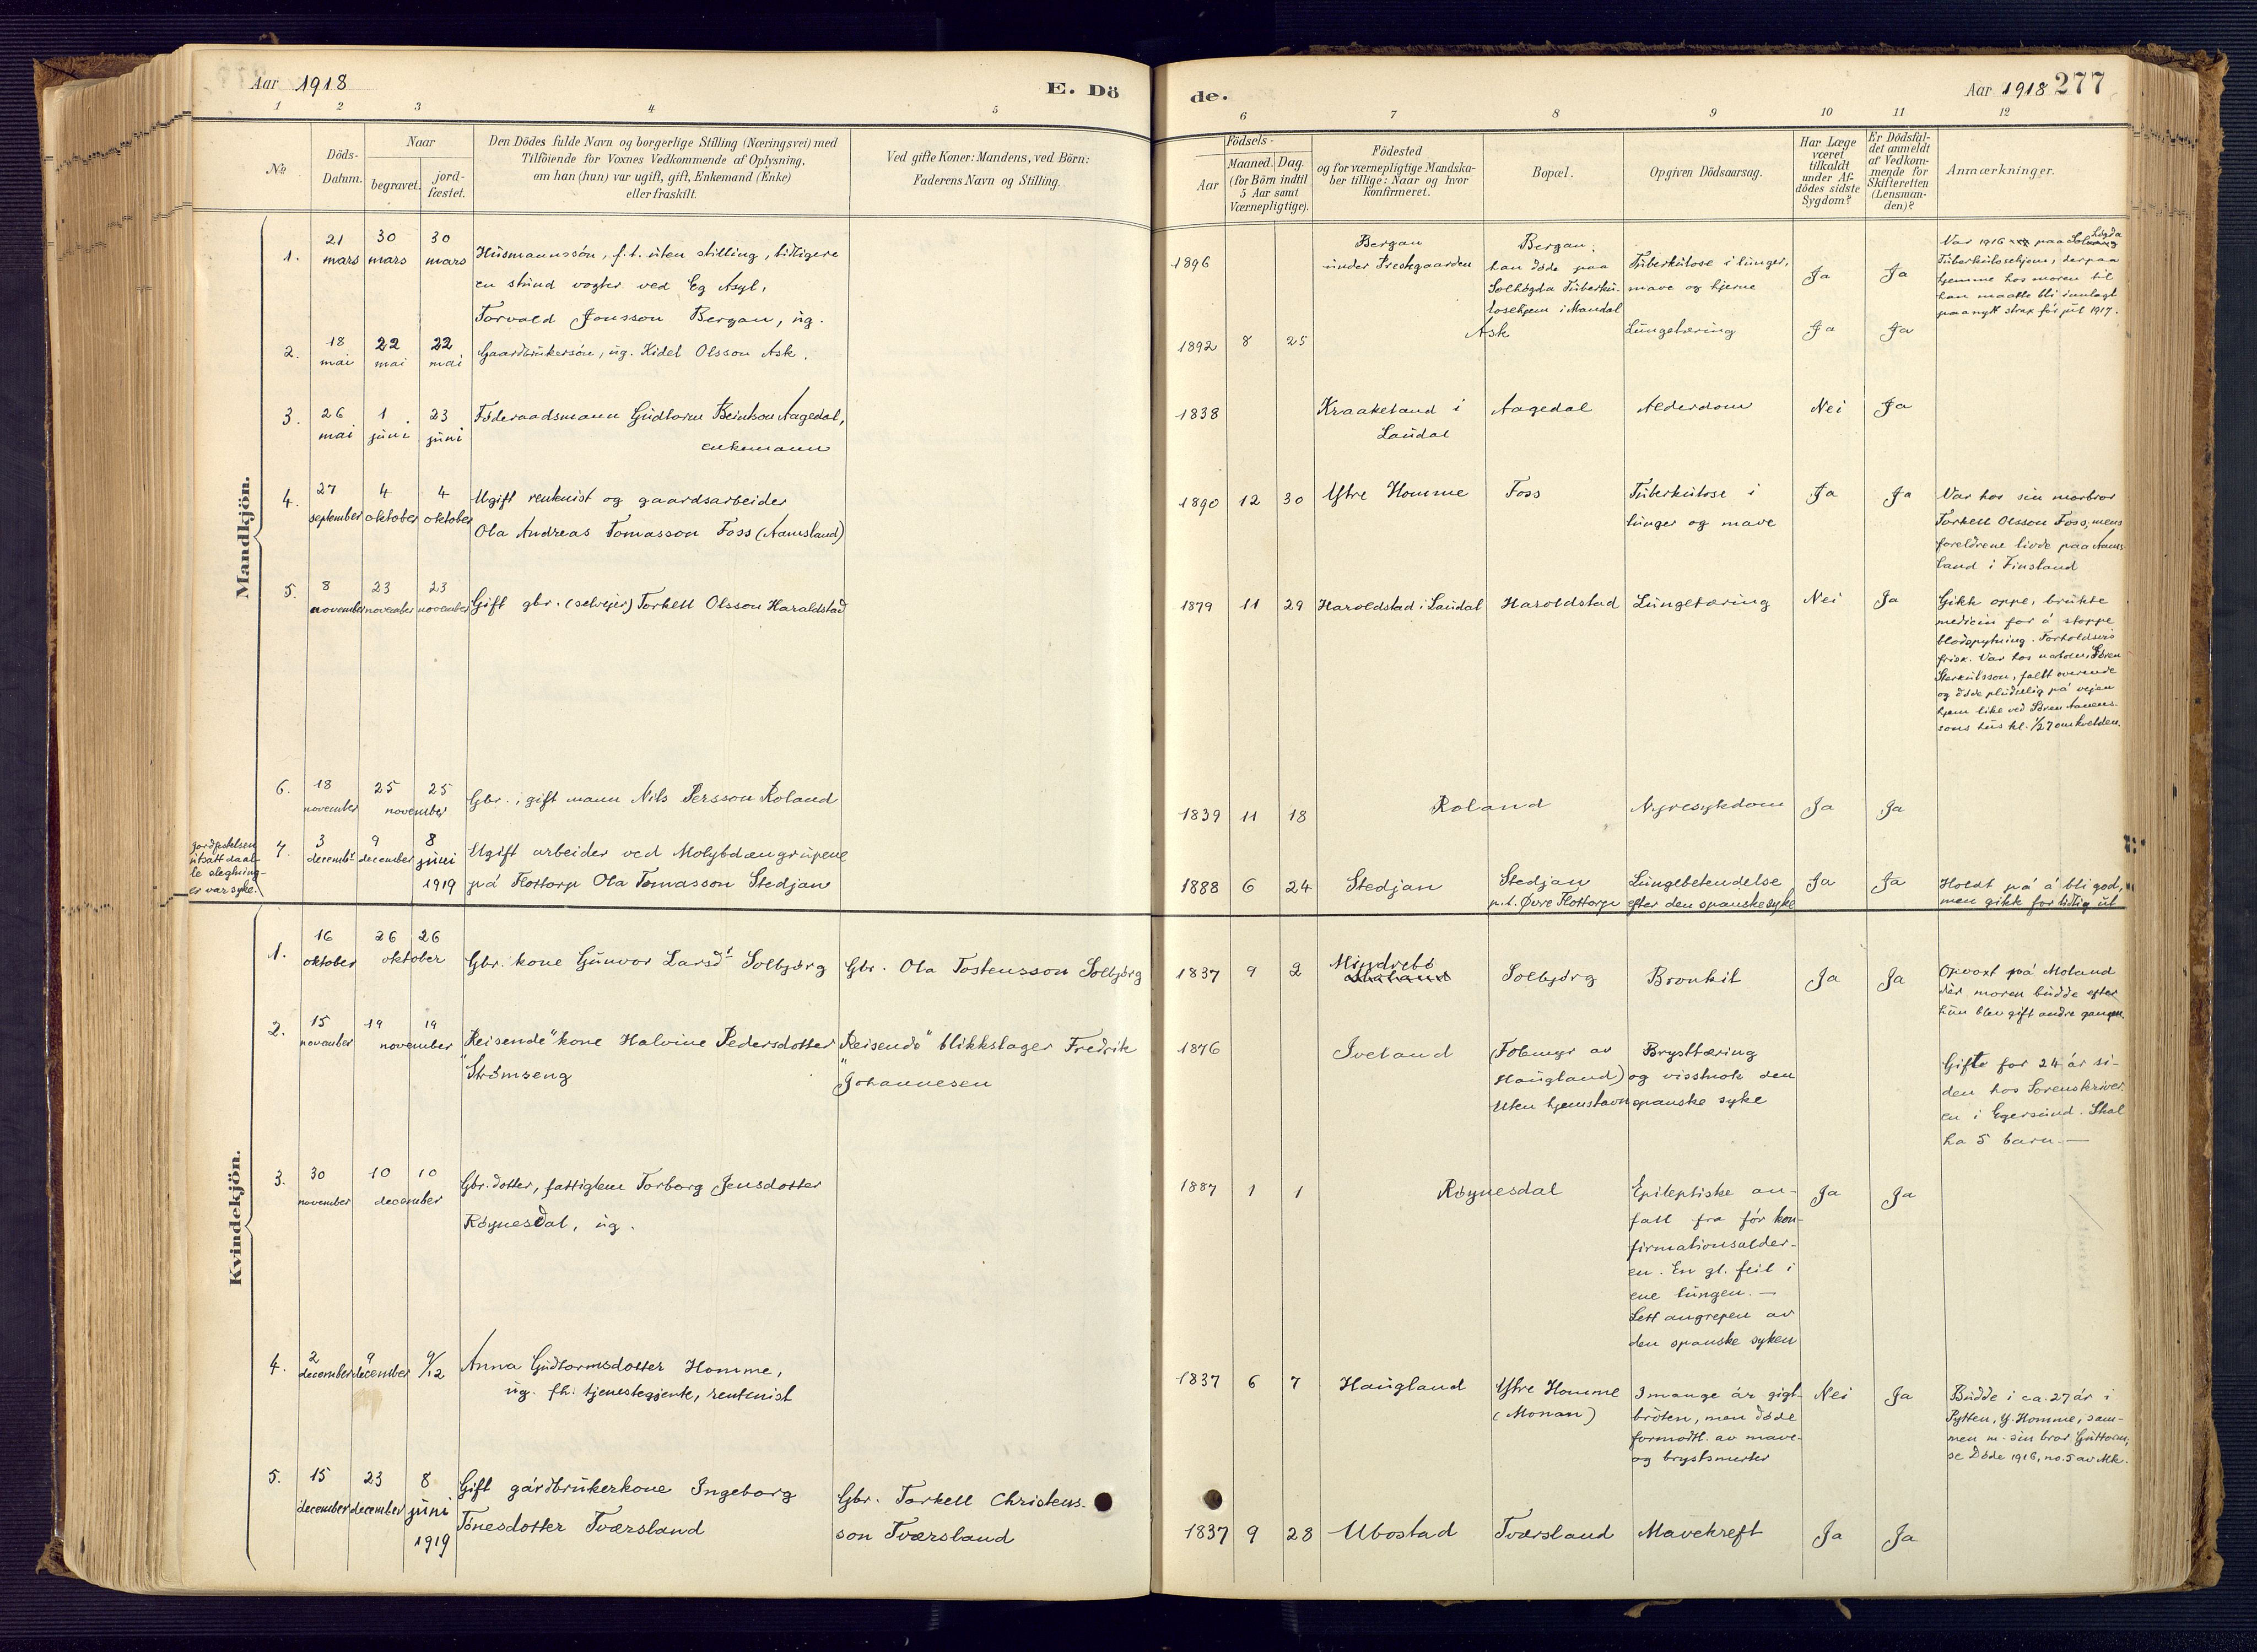 Aar 1918
E. Dö
de.
Aar 1918 277
1 2 3 4 5 6 7 8 9 10 11 12
No
Döds-Datum.
Naar
begravet.
jord-fæstet.
Den Dödes fulde Navn og borgerlige Stilling (Næringsvei) med
Tilföiende for Voxnes Vedkommende af Oplysning,
om han (hun) var ugift, gift, Enkemand (Enke)
eller fraskilt.
Ved gifte Koner: Mandens, ved Börn:
Faderens Navn og Stilling.
Födsels-
Aar
Maaned. Dag.
(for Börn indtil
5 Aar samt
Værnepligtige).
Födested
og for værnepligtige Mandska-
ber tillige: Naar og hvor
konfirmeret.
Bopæl.
Opgiven Dödsaarsag.
Har Læge
været
tilkaldt
under Af-
dödes sidste
Sygdom?
Er Dödsfal-
det anmeldt
af Vedkom-
mende for
Skifteretten
(Lensman-
den)?
Anmærkninger.
Mandkjön.
1.
21 mars
30 mars
30 mars
Husmannssøn, f.t. uten stilling, tidligere
en stund vogter ved Eg Asyl,
Torvald Jonsson Bergan, ug.
1896
Bergan
under Prestegaarden
Bergan.
han døde paa
Solhøgda Tuberku-
losehjem i Mandal
Tuberkulose i lunger,
mave og hjerne
Ja
Ja
Var 1916 paa Solhøgda
Tuberkulosehjem, derpaa
hjemme hos moren til
han maatte bli innlagt
paa nytt strax før jul 1917.
2.
18 mai
22 mai
22 mai
Gaardbrukersøn, ug. Kidel Olsson Ask.
1892 8 25
Ask
Lungetæring
Ja
Ja
3.
26 mai
1 juni
23 juni
Føderaadsmann Gudtorm Beintson Aagedal,
enkemann
1838
Kraakeland i
Laudal
Aagedal
Alderdom
Nei
Ja
4.
27 september
4 oktober
4 oktober
Ugift rentenist og gaardsarbeider
Ola Andreas Tomasson Foss (Aamsland)
1890 12 30
Ytre Homme
Foss
Tuberkulose i
lunger og mave
Ja
Ja
Var hos sin morbror
Torkell Olsson Foss, mens
foreldrene livde paa Aams-
land i Finsland
5.
8 november
23 november
23 november
Gift gbr. (selvejer) Torkell Olsson Haraldstad
1879 11 29
Haroldstad i Laudal
Haroldstad
Lungetæring
Nei
Ja
Gikk oppe, brukte
medicin for å stoppe
blodspytning. Forholdsvis
frisk. Var hos naboen, Søren
Sterkulsson, fallt overende
og døde pludselig på vejen
hjem like ved Søren Aanens-
sons hus kl. 1/2 7 om kvelden.
6.
18 november
25 25
november
Gbr., gift mann Nils Persson Roland
1839 11 18
Roland
Nyresykdom
Ja
Ja
jordfestelsen
utsatt da al-
le slegtning-
er var syke.
7.
3 decembr
9 december
8 juni 1919
Ugift arbeider ved Molybdængrupene
på Flottorp Ola Tomasson Stedjan
1888 6 24
Stedjan
Stedjan
p.t. Øvre Flottorp
Lungebetendelse
efter den spanske syke
Ja
Ja
Holdt på å bli god,
men gikk for tidlig ut
Kvindekjön.
1.
16 oktober
26 26
oktober
Gbr. kone Gunvor Larsdt Solbjørg
Gbr. Ola Tostensson Solbjørg
1837 9 2
Mindrebø
Solbjørg
Bronkit
Ja
Ja
Opvoxt på Moland
der moren budde efter
hun blev gift andre gangen.
2.
15 november
19 19
november
"Reisende" kone Halvine Pedersdotter
Strømseng
"Reisende" blikkslager Fredrik
Johannesen
1876
Iveland
(Folemyr av
Haugland)
Uten hjemstavn
Brysttæring
og visstnok den
spanske syke
Gifte for 24 år si-
den hos Sorenskriver-
en i Egersund. Skal
ha 5 barn. —
3.
30 november
10 10
december
Gbr. dotter, fattiglem Torborg Jensdotter
Røynesdal, ug.
1887 1 1
Røynesdal
Epileptiske an-
fall fra før kon-
firmationsalder-
en. En gl. feil i
ene lungen. —
Lett angrepen av
den spanske syken
Ja
Ja
4.
2 december
9 december
9/12
Anna Gudtormsdotter Homme,
ug. fh. tjenestegjente, rentenist
1837 6 7
Haugland
Ytre Homme
(Monan)
I mange år gigt-
bröten, men døde
formodtl. av mave-
og brystsmerter
Nei
Ja
Budde i ca. 27 år i
Pytten, Y. Homme, sam-
men m. sin bror Guttorm,
se Døde 1916, no. 5 av Mk.
5.
15 december
23 december
8 juni 1919
Gift gårdbrukerkone Ingeborg
Tønesdotter Tværsland
Gbr. Torkell Christens-
son Tværsland
1837 9 28
Ubostad
Tværsland
Mavekreft
Ja
Ja